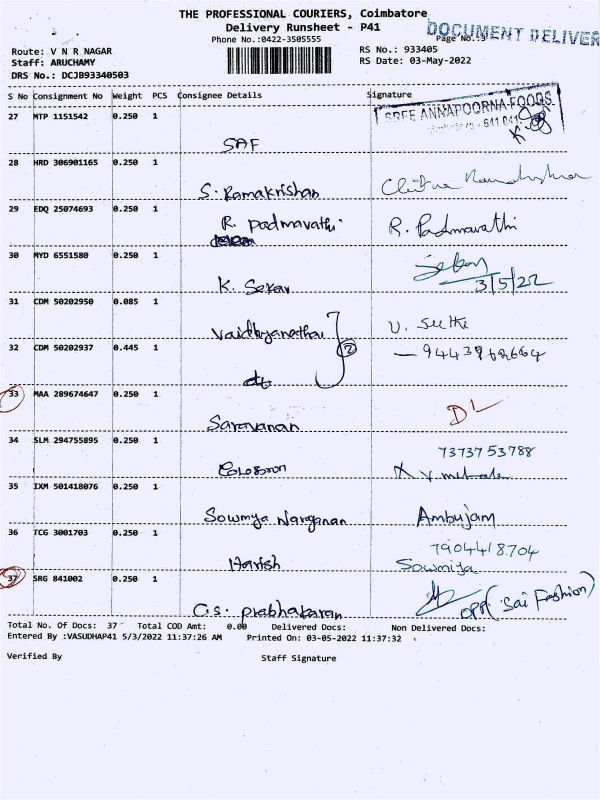 THE PROFESSIONAL COURIERS, Coimbatore
Delivery Runsheet - P41
DOCUMENT DELIVER
Phone No.:0422-3505555
Page No.:3
Route: V N R NAGAR
RS No.: 933405
Staff: ARUCHAMY
RS Date: 03-May-2022
DRS No.: DCJB93340503
S No Consignment No Weight PCS Consignee Details Signature
27 MTP 1151542 0.250 1
SREE ANNAPOORNA FOODS
641 041
SAF
28 HRD 306901165 0.250 1
S. Ramakrishan
29 EDQ 25074693 0.250 1
R. Padmavathi R. Padmavathi
30 MYD 6551580 0.250 1
K. Sekar Sekar
3/5/22
31 CDM 50202950 0.085 1
Vaidhyanathan
32 CDM 50202937 0.445 1
2
33 MAA 289674647 0.250 1
Saravanan
34 SLM 294755895 0.250 1
7373753788
35 IXM 501418076 0.250 1
Sowmya Narayanan Ambujam
36 TCG 3001703 0.250 1
7904418704
Harish Sowmiya
37 SRG 841002 0.250 1
C.S. Prabhakaran OPP( Sai Fashion)
Total No. Of Docs: 37 Total COD Amt: 0.00 Delivered Docs: Non Delivered Docs:
Entered By :VASUDHAP41 5/3/2022 11:37:26 AM Printed On: 03-05-2022 11:37:32
Verified By Staff Signature